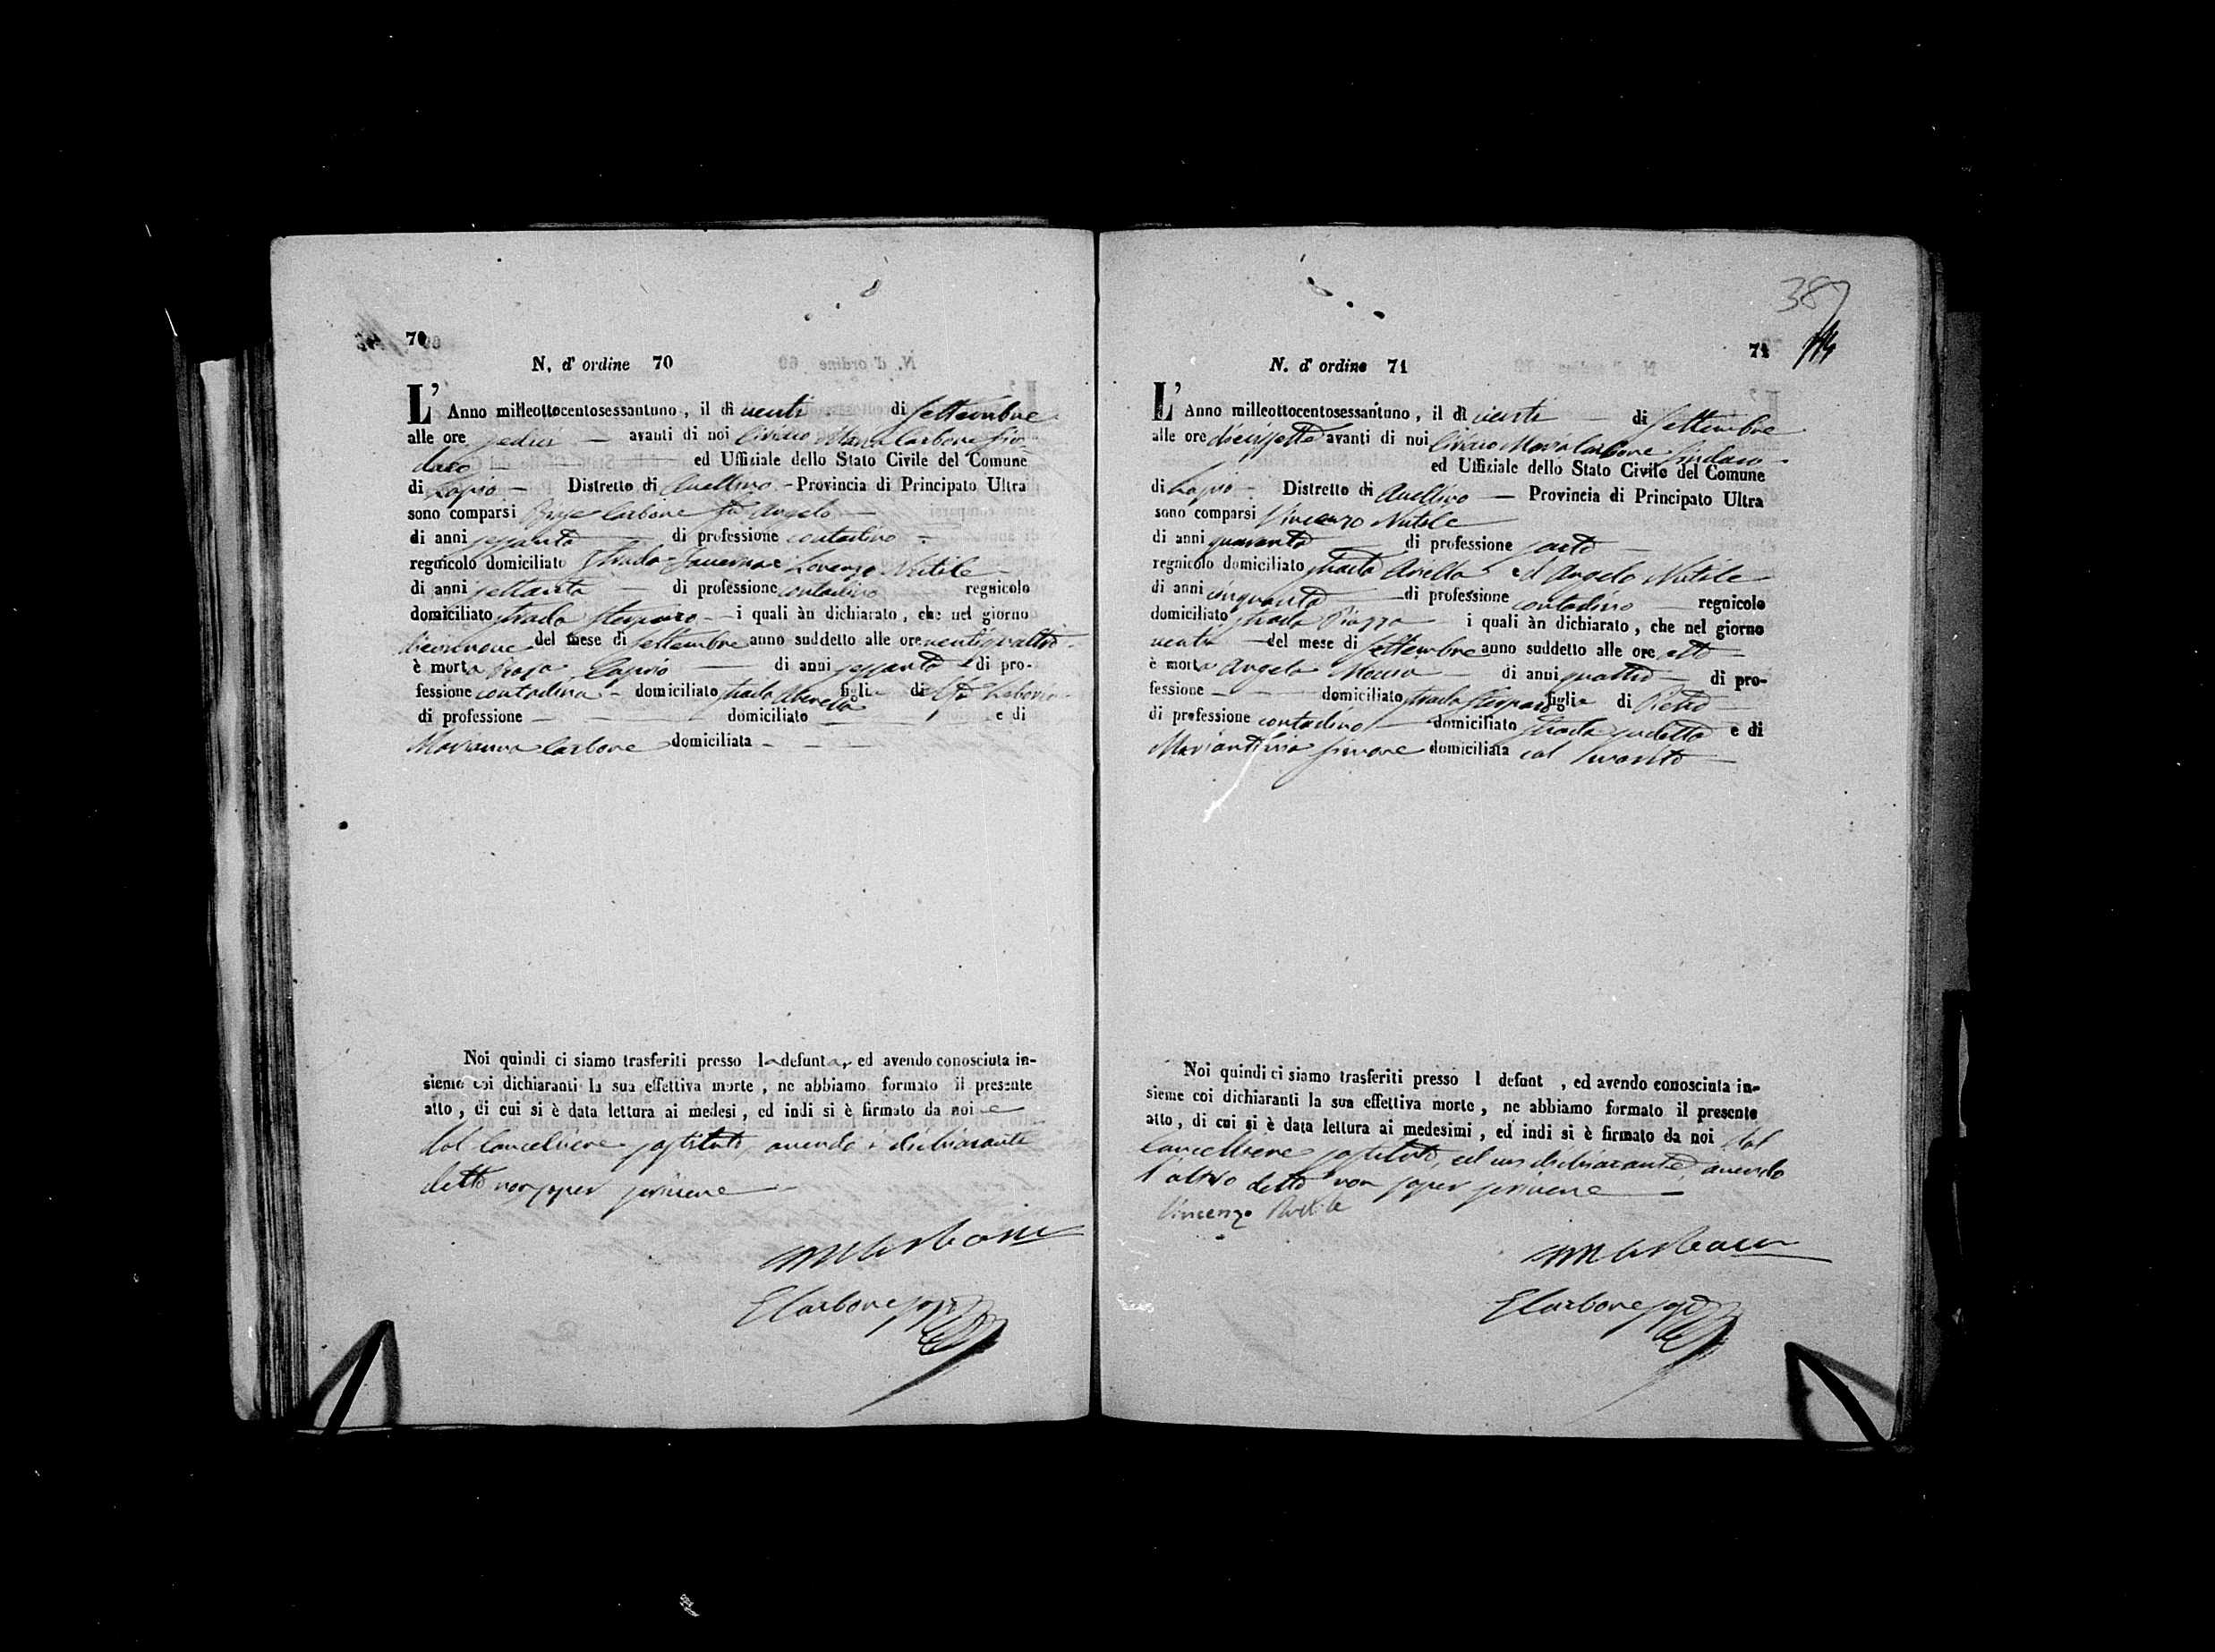 70
N. d' ordine 70
L' Anno milleottocentosessantuno, il dì venti di Settembre
alle ore sedici avanti di noi Ciriaco Maria Carbone Sin-
daco ed Uffiziale dello Stato Civile del Comune
di Lapio Distretto di Avellino - Provincia di Principato Ultra
sono comparsi Carbone fu Angelo
di anni sessanta di professione contadino
regnicolo domiciliato Strada Taverna e Lorenzo Nutile
di anni settanta di professione contadino regnicolo
domiciliato strada i quali àn dichiarato, che nel giorno
diecinnove del mese di settembre anno suddetto alle ore ventiquattro
è morta Rosa Caprio di anni sessanta di pro-
fessione contadina - domiciliato strada figlia di fu
di professione domiciliato e di
Marianna Carbone domiciliata
Noi quindi ci siamo trasferiti presso la defunta, ed avendo conosciuta in-
sieme coi dichiaranti la sua effettiva morte, ne abbiamo formato il presente
atto, di cui si è data lettura ai medesi, ed indi si è firmato da noi e
dal Cancelliere sostituto, avendo i dichiaranti
detto non saper scrivere
E Carbone
387
71
N. d' ordine 71
L' Anno milleottocentosessantuno, il dì venti di Settembre
alle ore diecissette avanti di noi Ciriaco Maria Carbone Sindaco
ed Uffiziale dello Stato Civile del Comune
di Lapio Distretto di Avellino - Provincia di Principato Ultra
sono comparsi Vincenzo Nutile
di anni quaranta di professione sarto
regnicolo domiciliato strada ed Angelo Nutile
di anni cinquanta di professione contadino regnicolo
domiciliato strada Piazza i quali àn dichiarato, che nel giorno
venti del mese di Settembre anno suddetto alle ore otto
è morta Angela di anni quattro di pro-
fessione domiciliato strada figlia di Pietro
di professione contadino domiciliato strada sudetta e di
Simone domiciliata col marito
Noi quindi ci siamo trasferiti presso l defunt , ed avendo conosciuta in-
sieme coi dichiaranti la sua effettiva morte, ne abbiamo formato il presente
atto, di cui si è data lettura ai medesimi, ed indi si è firmato da noi dal
Cancelliere sostituto, ed un dichiarante, avendo
l'altro detto non saper scrivere
Vincenzo Nutile
E Carbone